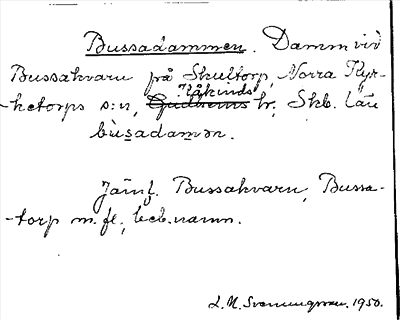 Bussadammen. Damm vid
Bussakvarn på Skultorp, Norra Kyr-
Kåkinds
-ketorps s:n, Gudhems hr, Skb. län
bùsadamən.
Jämf. Bussakvarn, Bussa-
-torp m.fl., beb.namn.
L.M. Svenungsson. 1950.